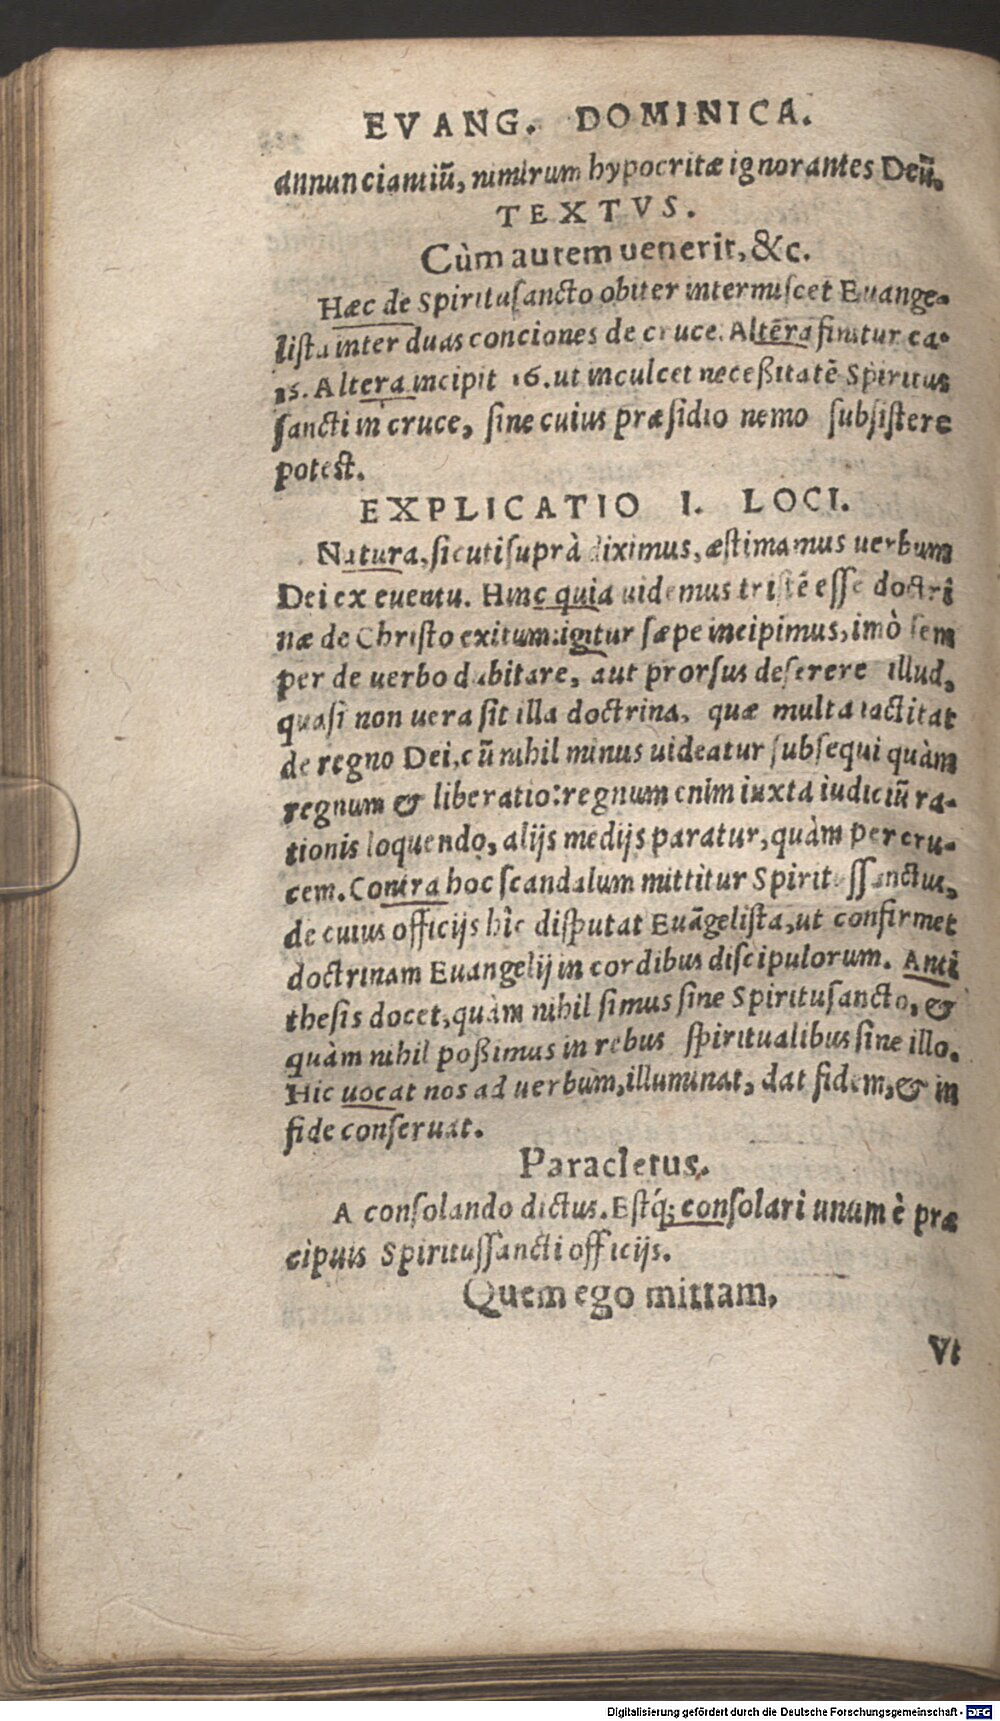 EVANG. DOMINICA.
annunciantiũ, nimirum hypocritæ ignorantes Deũ.
TEXTVS.
Cùm autem uenerit, &c.
Hæc de Spirituſancto obiter intermiſcet Euange-
liſta inter duas conciones de cruce. Altera finitur ca.
15. Altera incipit 16. ut inculcet neceßitatẽ Spiritus
ſancti in cruce, ſine cuius præſidio nemo ſubſiſtere
poteſt.
EXPLICATIO I. LOCI.
Natura, ſicuti ſuprà diximus, æſtimamus uerbum
Dei ex euentu. Hinc quia uidemus triſtẽ eſſe doctri
næ de Chriſto exitum: igitur ſæpe incipimus, imò ſem
per de uerbo dubitare, aut prorſus deſerere illud,
quaſi non uera ſit illa doctrina, quæ multa iactitat
de regno Dei, cũ nihil minus uideatur ſubſequi quàm
regnum & liberatio: regnum enim iuxta iudiciũ ra-
tionis loquendo, alijs medijs paratur, quàm per cru-
cem. Contra hoc ſcandalum mittitur Spirituſſanctus,
de cuius officijs hîc diſputat Euãgeliſta, ut confirmet
doctrinam Euangelij in cordibus diſcipulorum. Anti
theſis docet, quàm nihil ſimus ſine Spirituſancto, &
quàm nihil poßimus in rebus ſpiritualibus ſine illo.
Hic uocat nos ad uerbum, illuminat, dat fidem, & in
fide conſeruat.
Paracletus.
A conſolando dictus. Eſtq́; conſolari unum è præ
cipuis Spirituſſancti officijs.
Quem ego mittam,
Vt
Digitalisierung gefördert durch die Deutsche Forschungsgemeinschaft - DFG